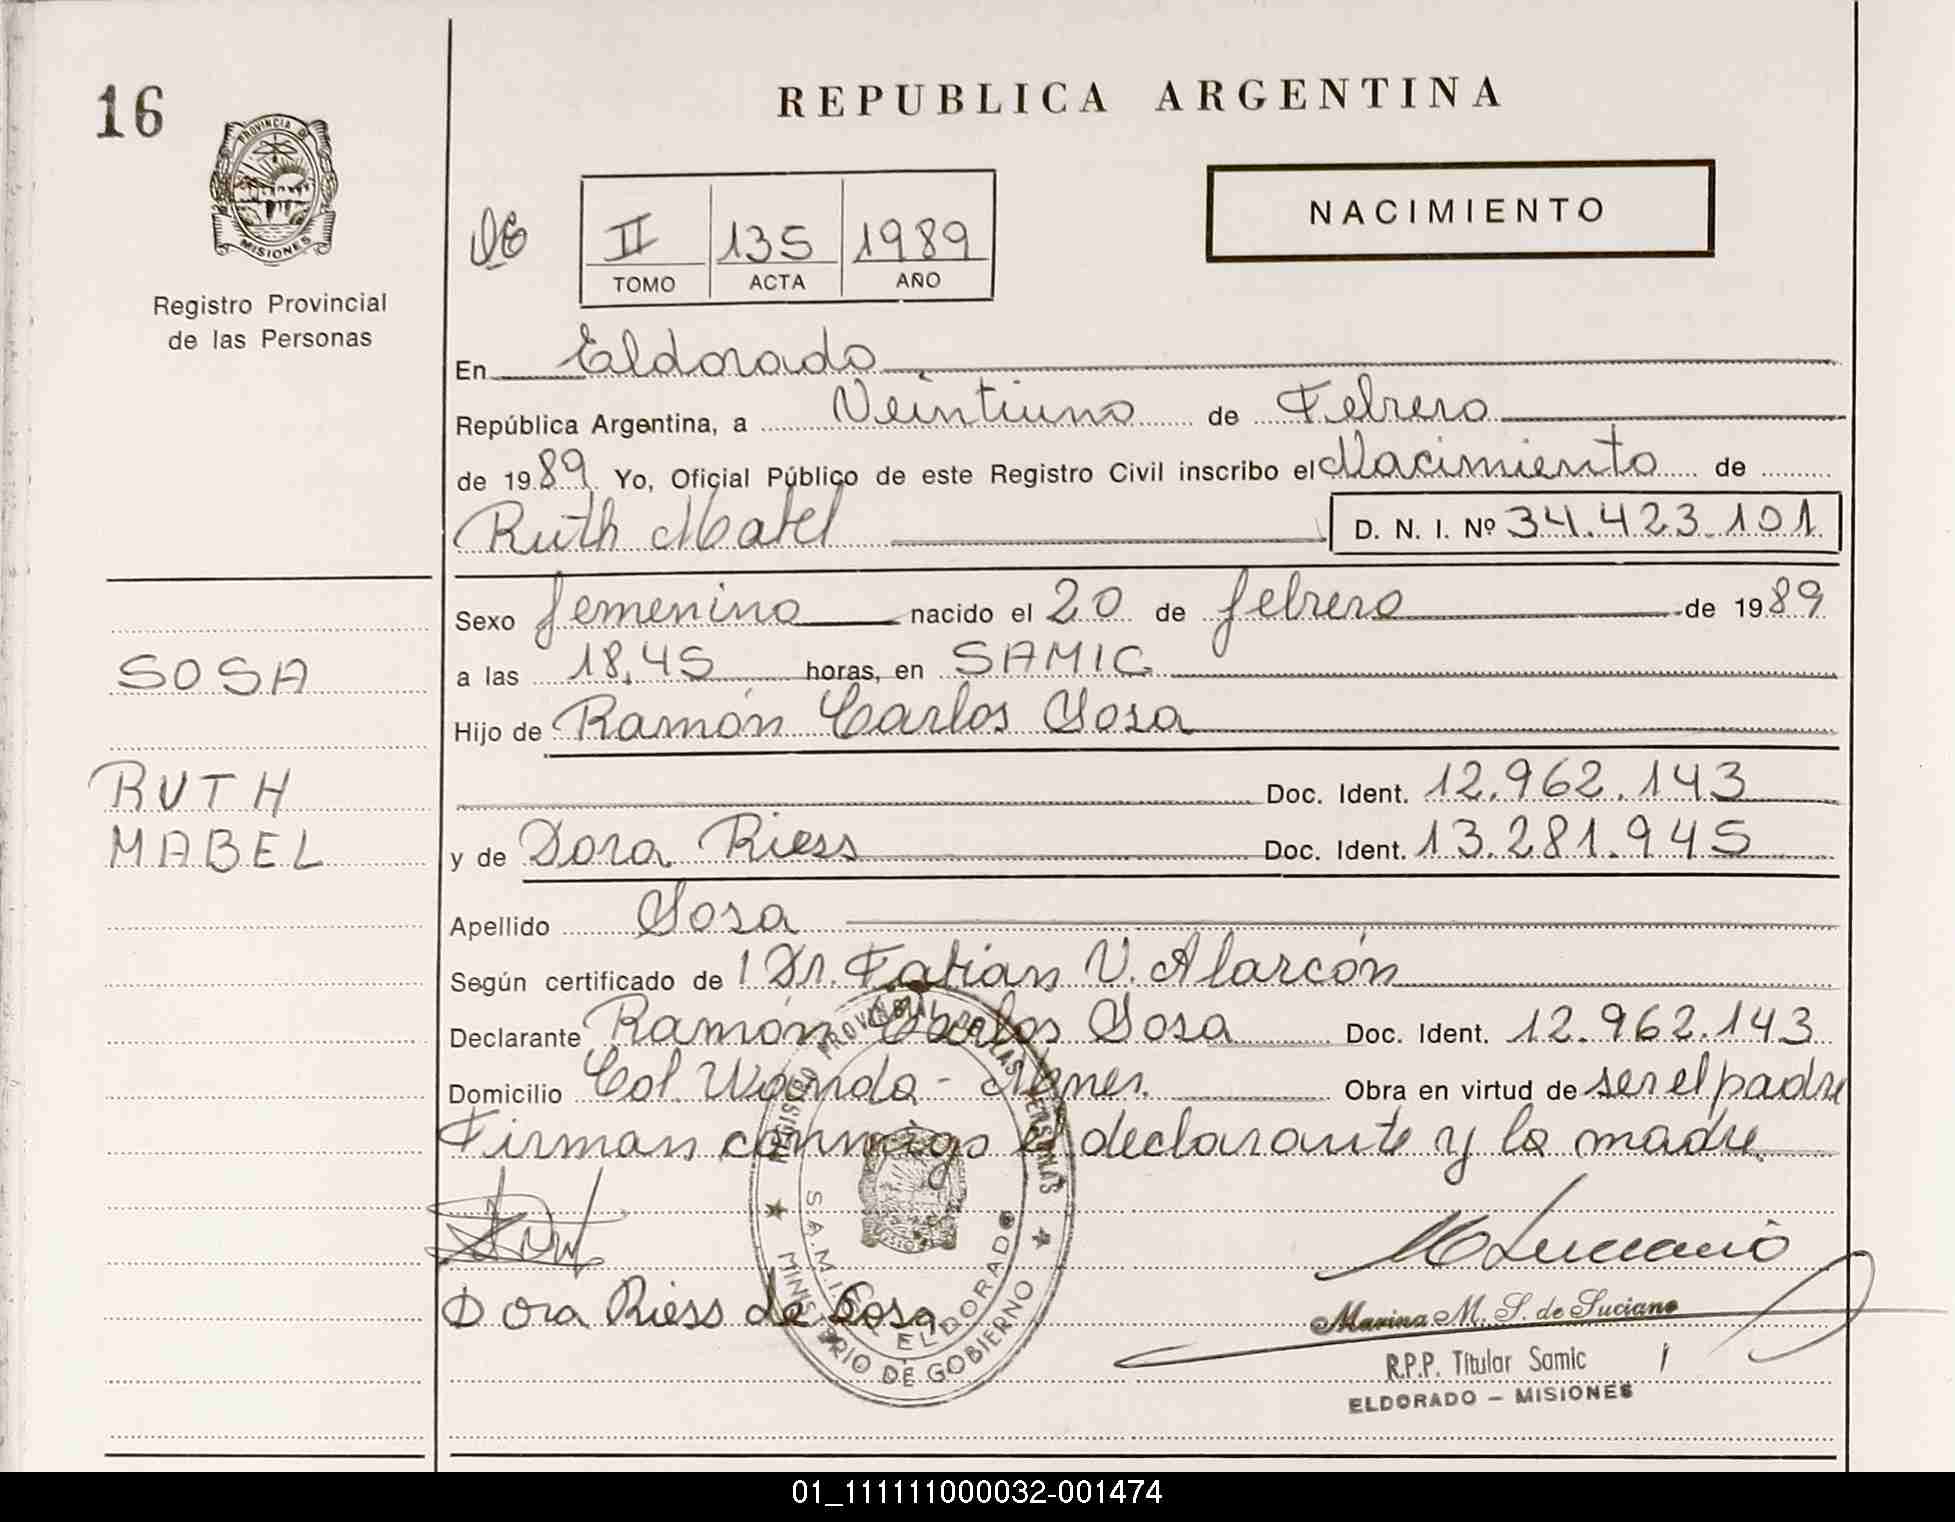 16
PROVINCIA DE
MISIONES
Registro Provincial
de las Personas
REPUBLICA ARGENTINA
NACIMIENTO
II 135 1989
TOMO ACTA AÑO
En Eldorado
República Argentina, a Veintiuno de Febrero
de 1989 Yo, Oficial Público de este Registro Civil inscribo el Nacimiento de
Ruth Mabel D. N. I. Nº 34.423.101
Sexo femenino nacido el 20 de febrero de 1989
SOSA
a las 18,45 horas, en SAMIC
Hijo de Ramón Carlos Sosa
RUTH
Doc. Ident. 12.962.143
MABEL
y de Dora Riess Doc. Ident. 13.281.945
Apellido Sosa
Según certificado de Dr. Fabian V. Alarcón
Declarante Ramón Carlos Sosa Doc. Ident. 12.962.143
Domicilio Col. Wanda - Mnes. Obra en virtud de ser el padre
Firman conmigo el declarante y la madre.
REGISTRO PROVINCIAL DE LAS PERSONAS
S.A.M.I.C. ELDORADO
MINISTERIO DE GOBIERNO
Dora Riess de Sosa
Marina M. S. de Luciano
R.P.P. Titular Samic
ELDORADO - MISIONES
01_111111000032-001474